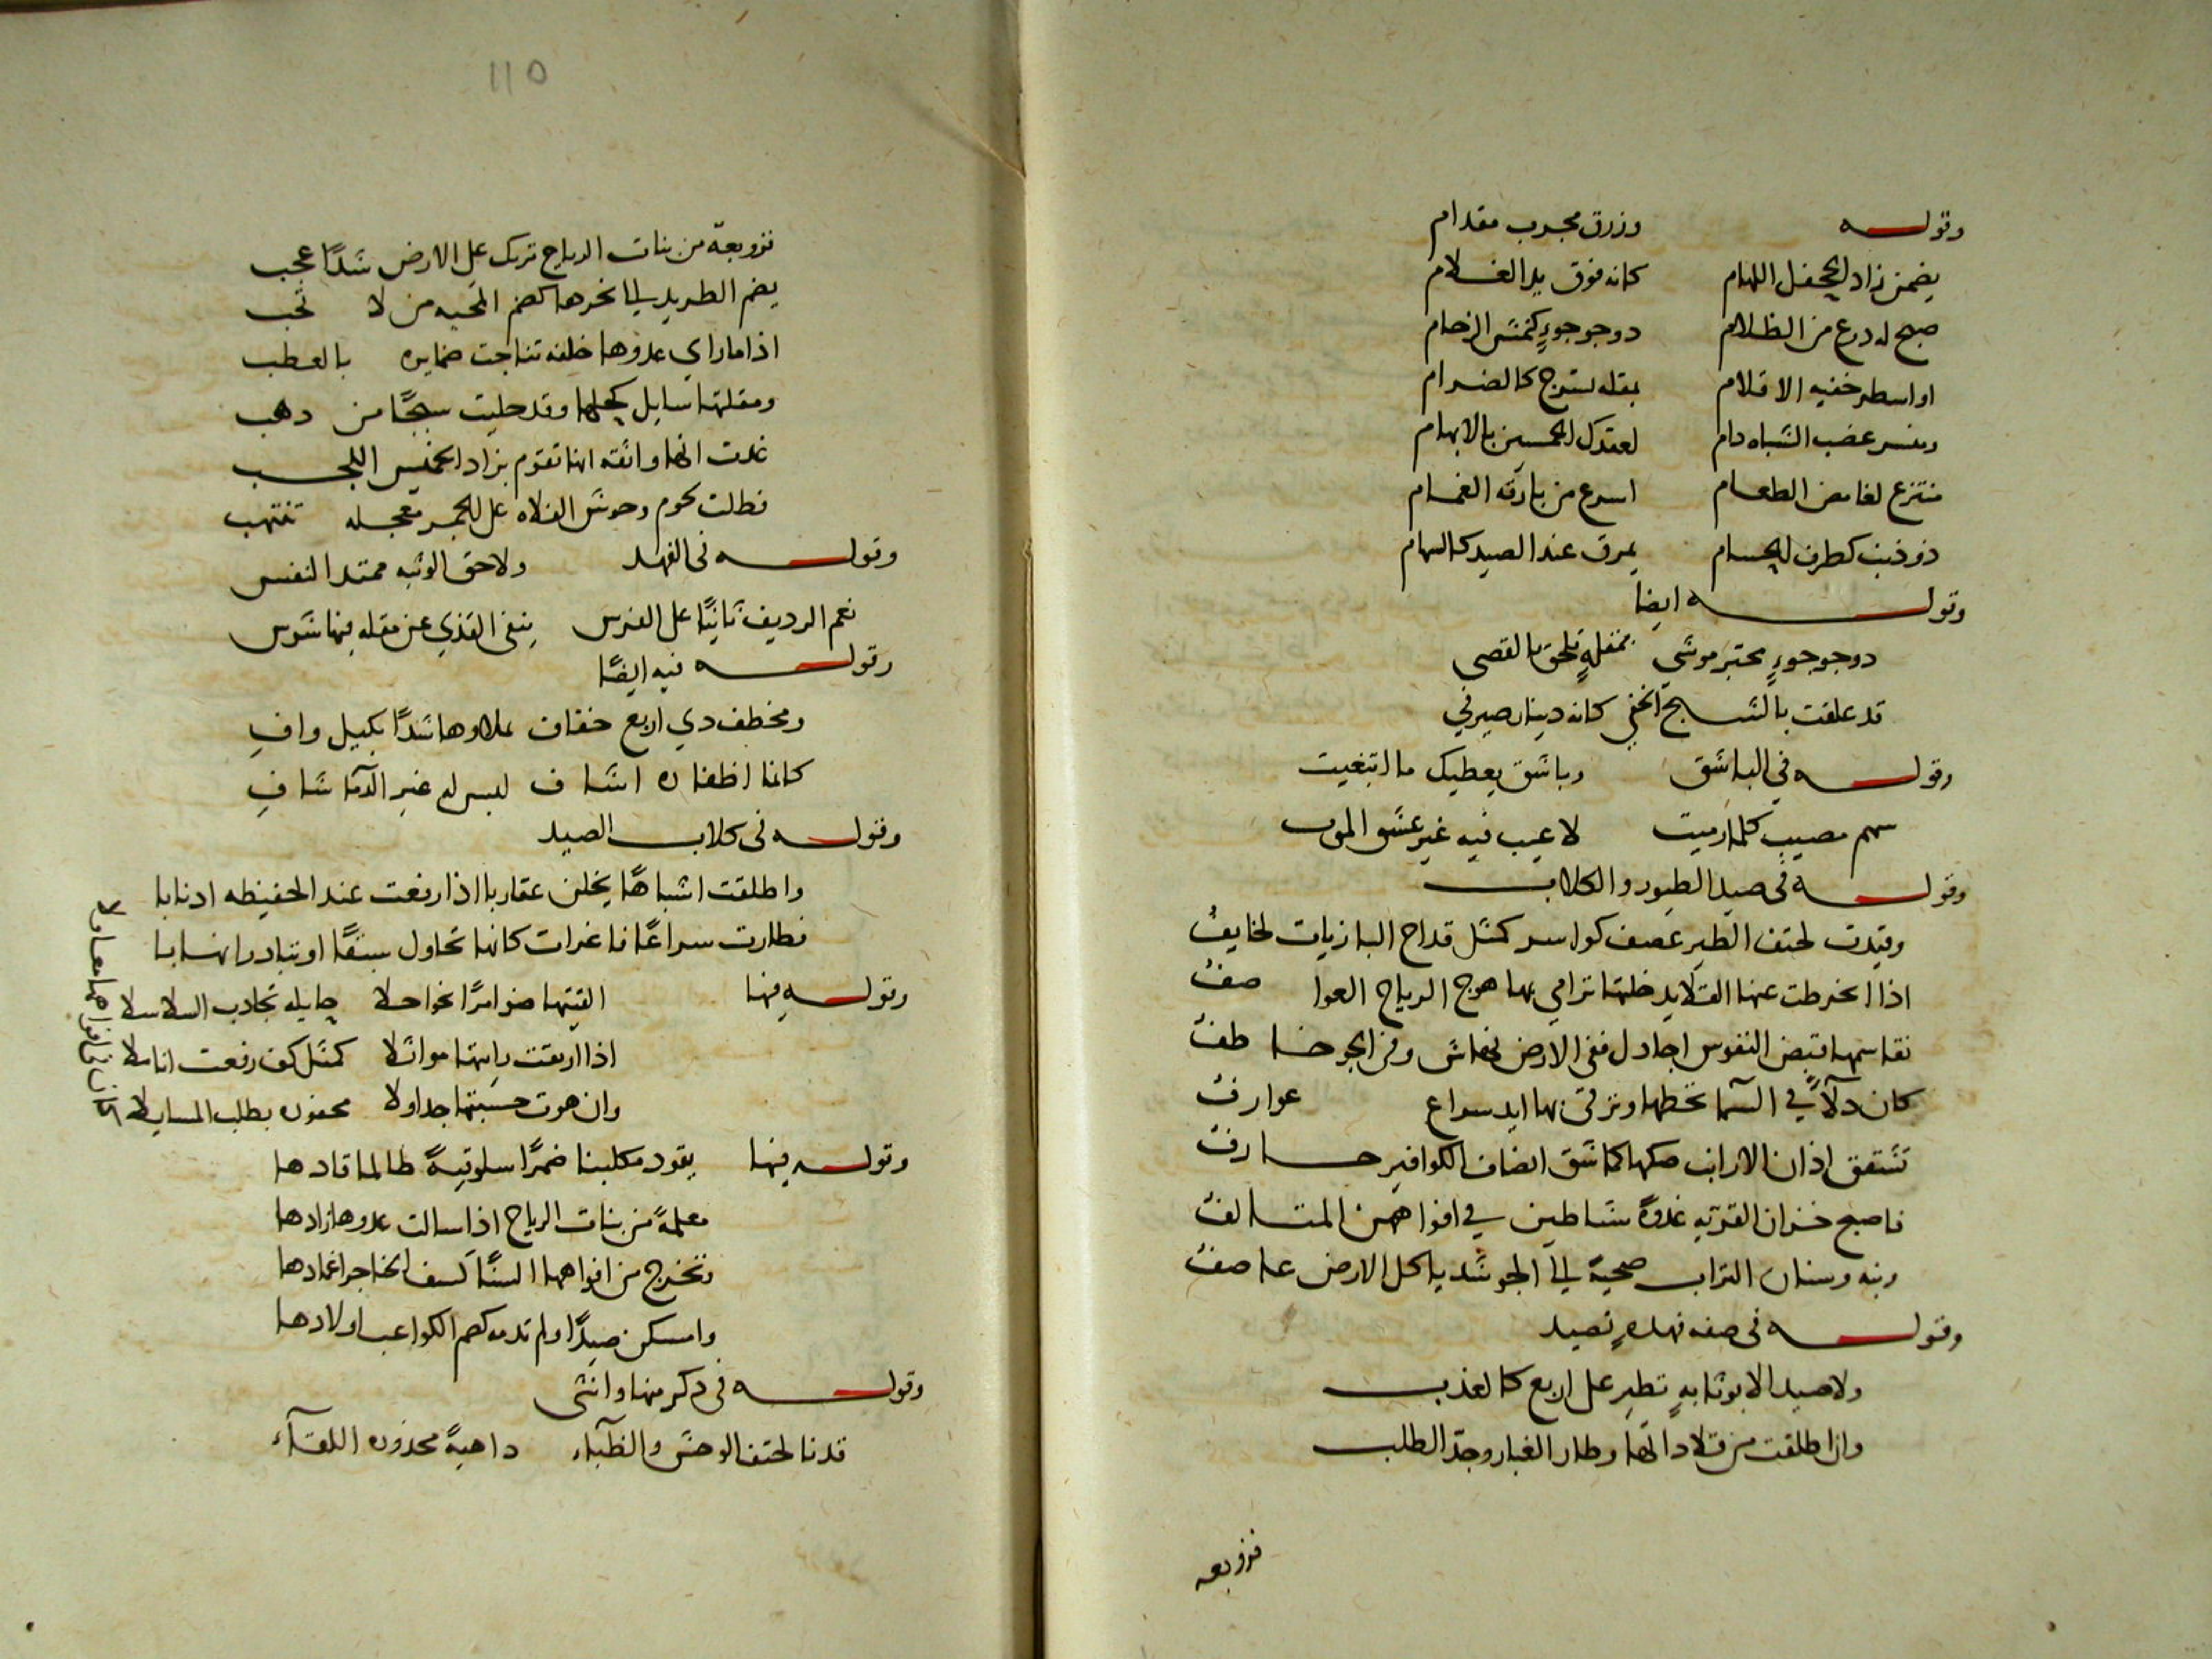 وقوله وزرق مجرب مقدام
يضمن زاد الجحفل اللهام كانه فوق يد الغلام
صبح له درع من الظلام دو جوجوءٍ كنمش الرخام
او اسطر خفيه الاقلام بمقله تسرج كالضرام
ومنسر عضب الشباه دام لعقدك الخمسين بالابهام
منتزع لغامض الطعام اسرع من بارقه الغمام
ذو ذنب كطرف الحسام يمرق عند الصيد كالسهام
وقوله ايضا
دو جوجوءٍ محتبر موشي بمقلةٍ تلحق بالقصى
قد علقت بالشبح الخفي كانه دينار صيرفي
وقوله في الباشق وباشق يعطيك ما ابتغيت
سهم مصيب كلما رميت لا عيب فيه غير عشق الموت
وقوله في صيد الطيور والكلاب
وقيدت لحتف الطير غضف كواسر كمثل قداح البازيات نحايفُ
اذا انخرطت عنها القلايد خلتها ترامي بها هوج الرياح العواصفُ
تقاسمها قبض النفوس اجادل ففي الارض نهاش وفي الجو خاطفُ
كان دلآً في السما تحطها وترقى بها ايد سراع عوارفُ
تشقق اذان الارانب صكها كما شق انصاف الكوافير حارفُ
فاصبح خزان القريه غدوةً شياطين في افواههن المتالفُ
ونبه وسنان التراب صحيةً الى الجو شد ياكل الارض عاصفُ
وقوله في صفه فهدهٍ تصيد
ولا صيد الا بوثابهٍ تطير على اربع كالعذب
وان اطلقت من قلاداتها وطار الغبار وجدّ الطلب
فزوبعه
١١٥
فزوبعة من بنات الرياح تريك على الارض شدًا عجب
يضم الطريد الى نحرها كضم المحبه من لا تحب
اذا ما راى عدوها خلفه تناجت ضمايره بالعطب
ومقلتها سايل كحلها وقد حليت سبجًا من ذهب
غدت انها واثقه انها تقوم بزاد الخميس اللجب
فظلت لحوم وحوش الفلاه على الجمر معجله تنتهب
وقوله في الفهد ولاحق الوثبه ممتد النفس
نعم الرديف ثانيًا على الفرس ينفى القذي عن مقله فيها شوس
وقوله فيه ايضًا
ومخطف دي اربع خفاف يملاوها شدًا بكيل وافِ
كانما اظفاره اشاف ليس له غير الدما شافِ
وقوله في كلاب الصيد
واطلقت اشباهًا يخلن عقاربا اذا رفعت عند الحفيظه ادنابا
فطارت سراعًا فاغرات كانها تحاول سبقًا او تبادر انهابا
وقوله فيها القيتها ضوامرًا نواحلا جايله تجادب السلاسلا
اذا ارتقت رايتها مواثلا كمثل كف رفعت اناملا
وان هوت حسبتها جداولا محفوزه بطلب المسايلا
كان في افواهها معاولا
وقوله فيها يقود مكلبنا ضمرًا سلوقيةً طالما قادها
معلمةً من بنات الرياح اذا سالت عدوها زادها
وتخرج من افواهها السنًا كسف الخناجر اغمادها
وامسكن صيدًا ولم تدمه كضم الكواعب اولادها
وقوله في دكر منها وانثى
قدنا لحتف الوحش والظبآء داهيةً محذوره اللقآء